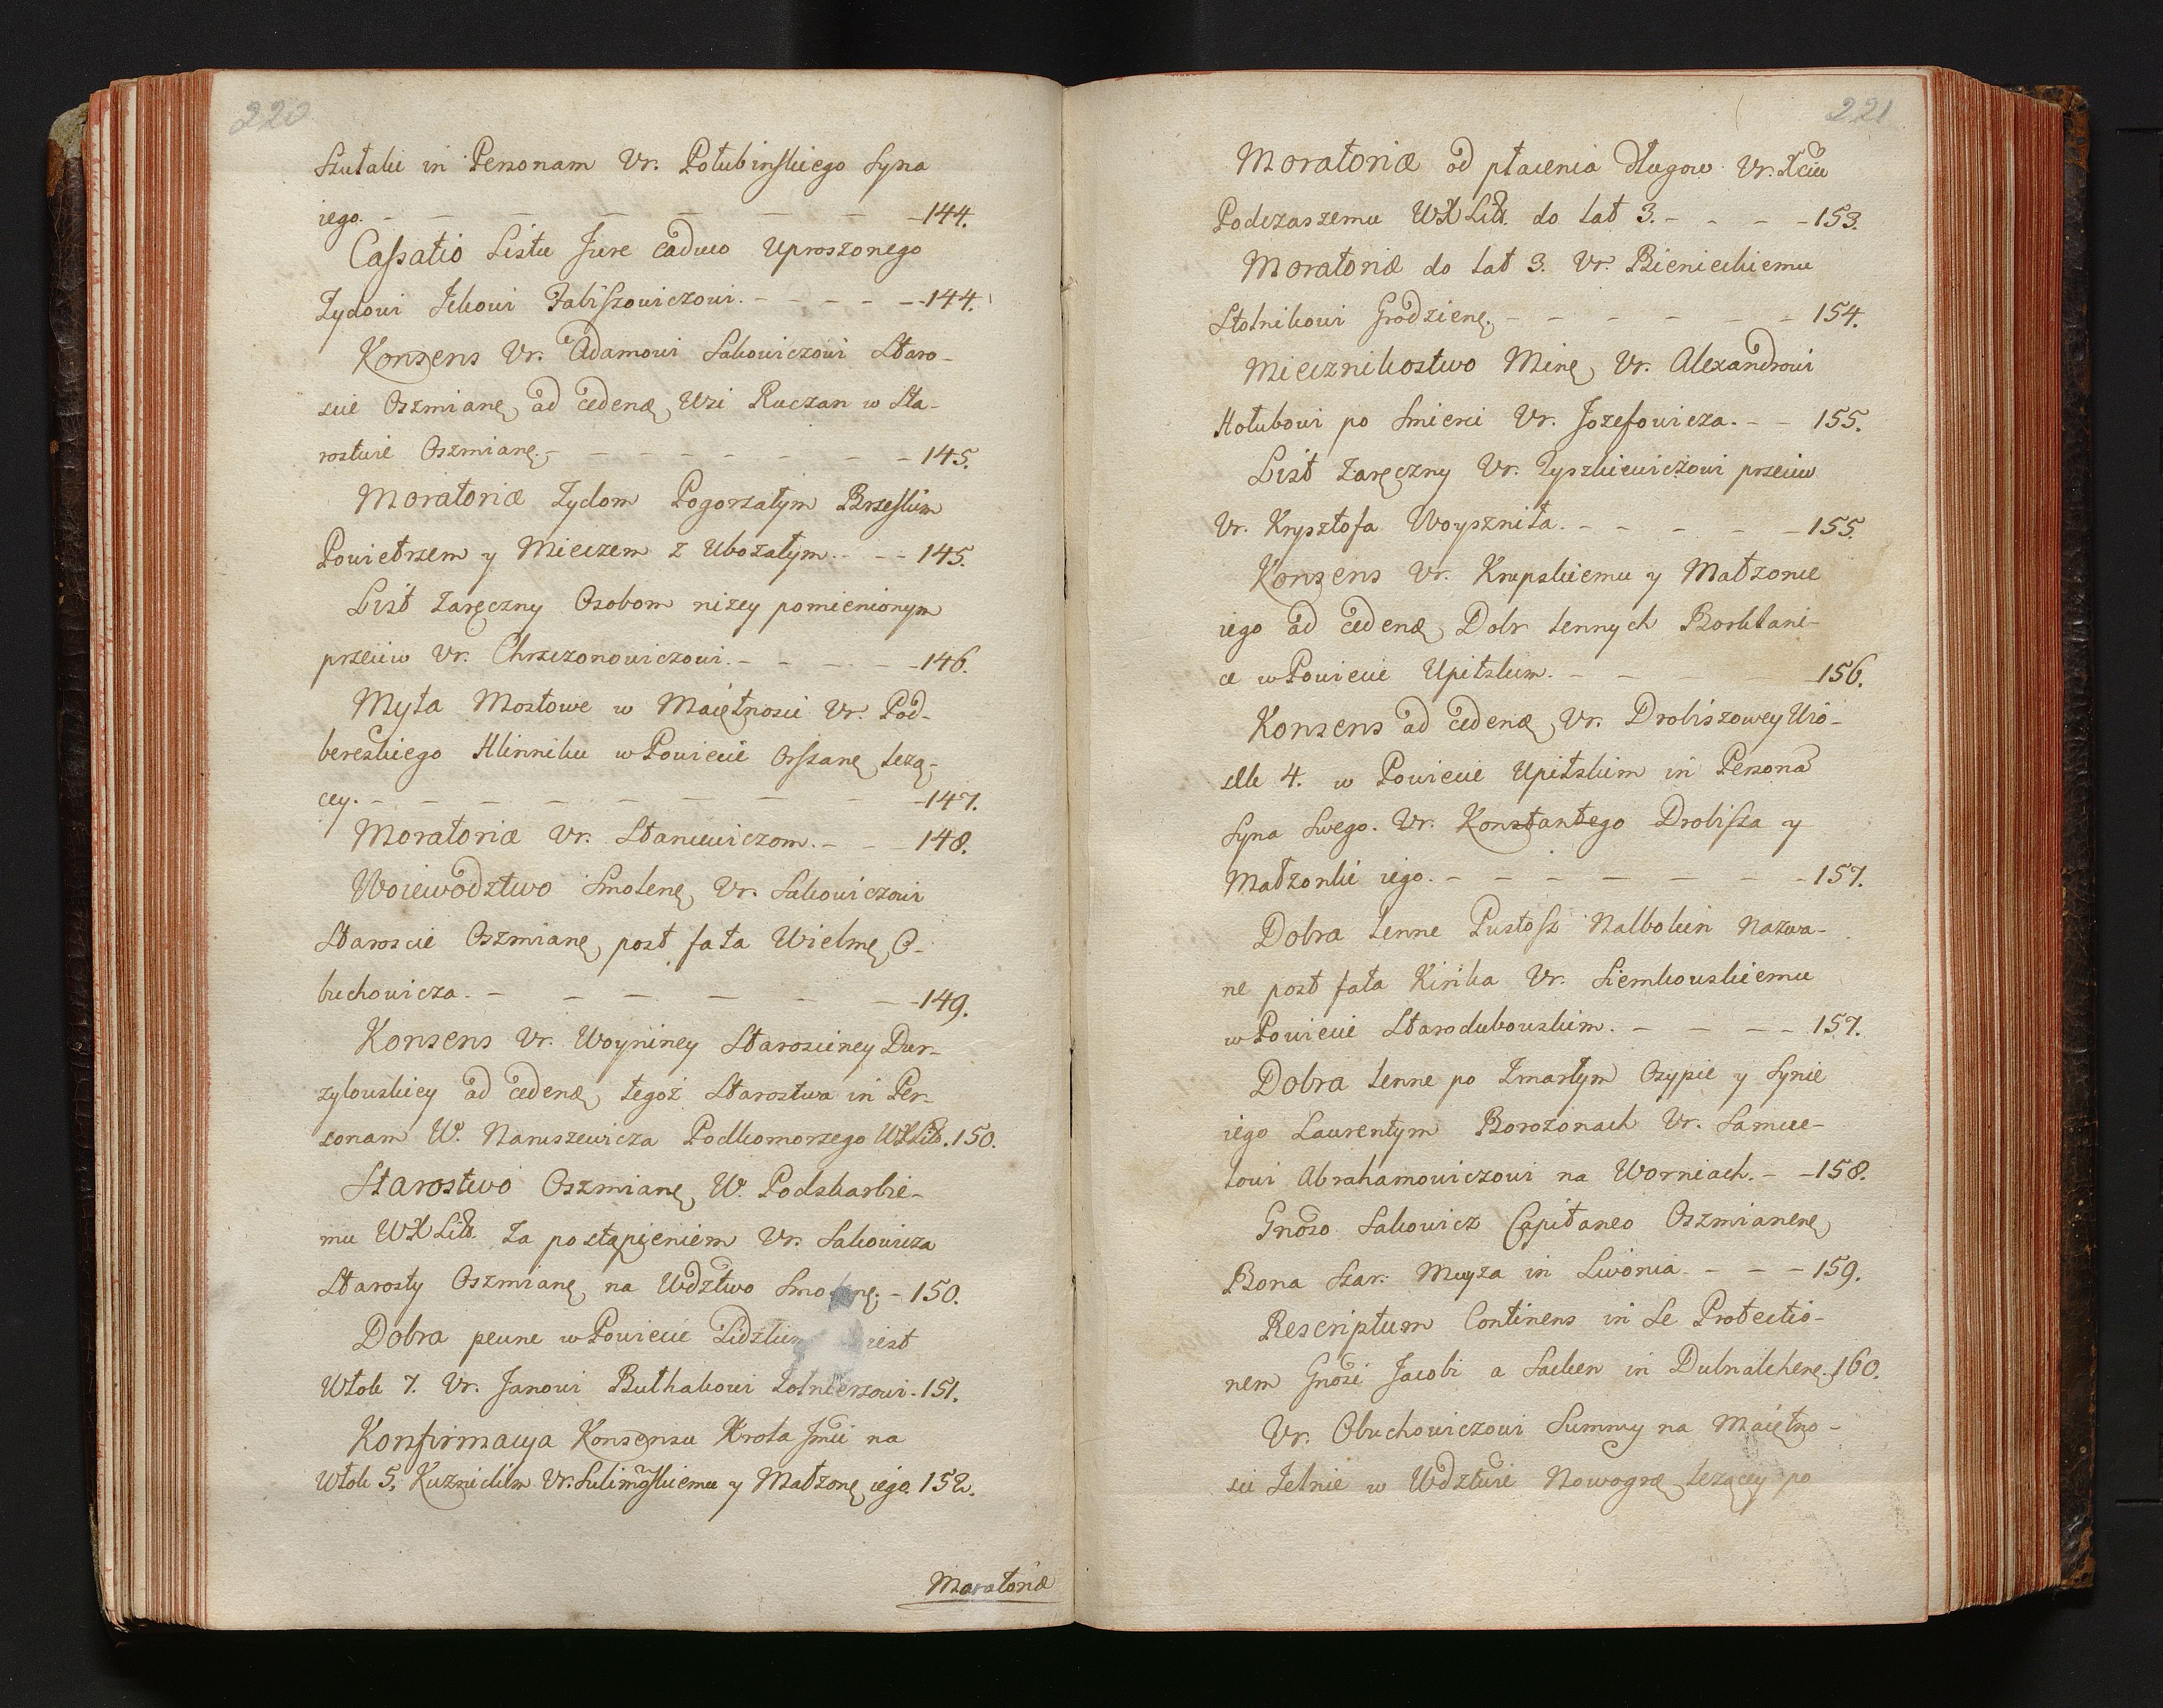 220
Szutalu in Personam Vr. Połubinskiego Syna
iego. - - - - - - - - 144.
Cassatio Listu Jure caduco Uproszonego
Zydowi Ickowi Fabiszowiczowi. - - - - - 144.
Konsens Vr. Adamowi Sakowiczowi Staro-
scie Oszmianę, ad cedenæ, Wsi Ruczan w Sta-
rostwie Oszmianę. - - - - - - - - 145.
Moratoriæ Zydom Pogorzałym Brzeskim
Powietrzem y Mieczem z Ubozałym. - - - 145.
List Zaręczny Osobom nizey pomienionym
przeciw Vr. Chrszczonowiczowi. - - - - - 146.
Myta Mostowe w Maiętnosci Vr. Pod-
bereskiego Hlinniku w Powiecie Orszanę, lezą-
cey. - - - - - - - - 147.
Moratoriæ Vr. Stancewiczom. - - - 148.
Woiewodztwo Smolenę, Vr. Sakowiczowi
Staroscie Oszmianę, post fata Wielmę, O-
buchowicza. - - - - - - - 149.
Konsens Vr. Woyniney Staroscieney Dur-
zylowskiey ad cedenæ, tegoz Starostwa in Per-
sonam W. Naruszewicza Podkomorzego WXLitt. 150.
Starostwo Oszmianę, W. Podskarbie-
mu WXLitt. Za postąpieniem Vr. Sakowicza
Starosty Oszmianę, na Wdztwo Smolenę. - 150.
Dobra pewne w Powiecie Lidzkim iest
Włok 7. Vr. Janowi Buthakowi Zołnierzowi. 151.
Konfirmacya Konsensu Krola Jmci na
Włok 5. Kuznickim Vr. Sulimowskiemu y Małzonę, iego. 152.
Moratoriæ
221
Moratoriæ od płacenia długow Vr. Xciu
Podczaszemu WXLitt. do lat 3. - - - - 153.
Moratoriæ do lat 3. Vr. Bienieckiemu
Stolnikowi Grodzienę. - - - - - - 154.
Miecznikostwo Minę, Vr. Alexandrowi
Hołubowi po Smierci Vr. Jozefowicza. - - 155.
List Zaręczny Vr. Tyszkiewiczowi przeciw
Vr. Krysztofa Woysznita. - - - - - 155.
Konsens Vr. Krupskiemu y Małzonce
iego ad cedenæ, Dobr lennych Borklani-
ce w Powiecie Upitskim. - - - 156.
Konsens ad cedenæ, Vr. Drobiszowey Wio-
sek 4. w Powiecie Upitskim in Persona
Syna Swego. Vr. Konstantego Drobisza y
Małzonki iego. - - - - - - - 157.
Dobra lenne Pustosz Nalbokin Nazwa-
ne post fata Kirika Vr. Siemkowskiemu
w Powiecie Starodubowskim. - - - - 157.
Dobra lenne po Zmarłym Osypie y Synie
iego Laurentym Borozonach Vr. Samue-
lowi Abrahamowiczowi na Worniach. - - 158.
Gnoso Sakowicz Capitaneo Oszmianenę,
Bona Szar: Muyza in Livonia. - - - 159.
Rescriptum Continens in Se Protectio-
nem Gnosi Jacobi a Sacken in Dubnalchenę. 160.
Vr. Obuchowiczowi Summy na Maiętno-
sci Ielnie w Wdztwie Nowogrę, lezącey po